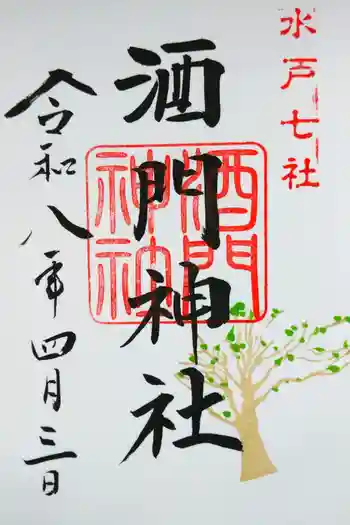 水戸七社
酒門神社
酒門神社
令和八年四月三日